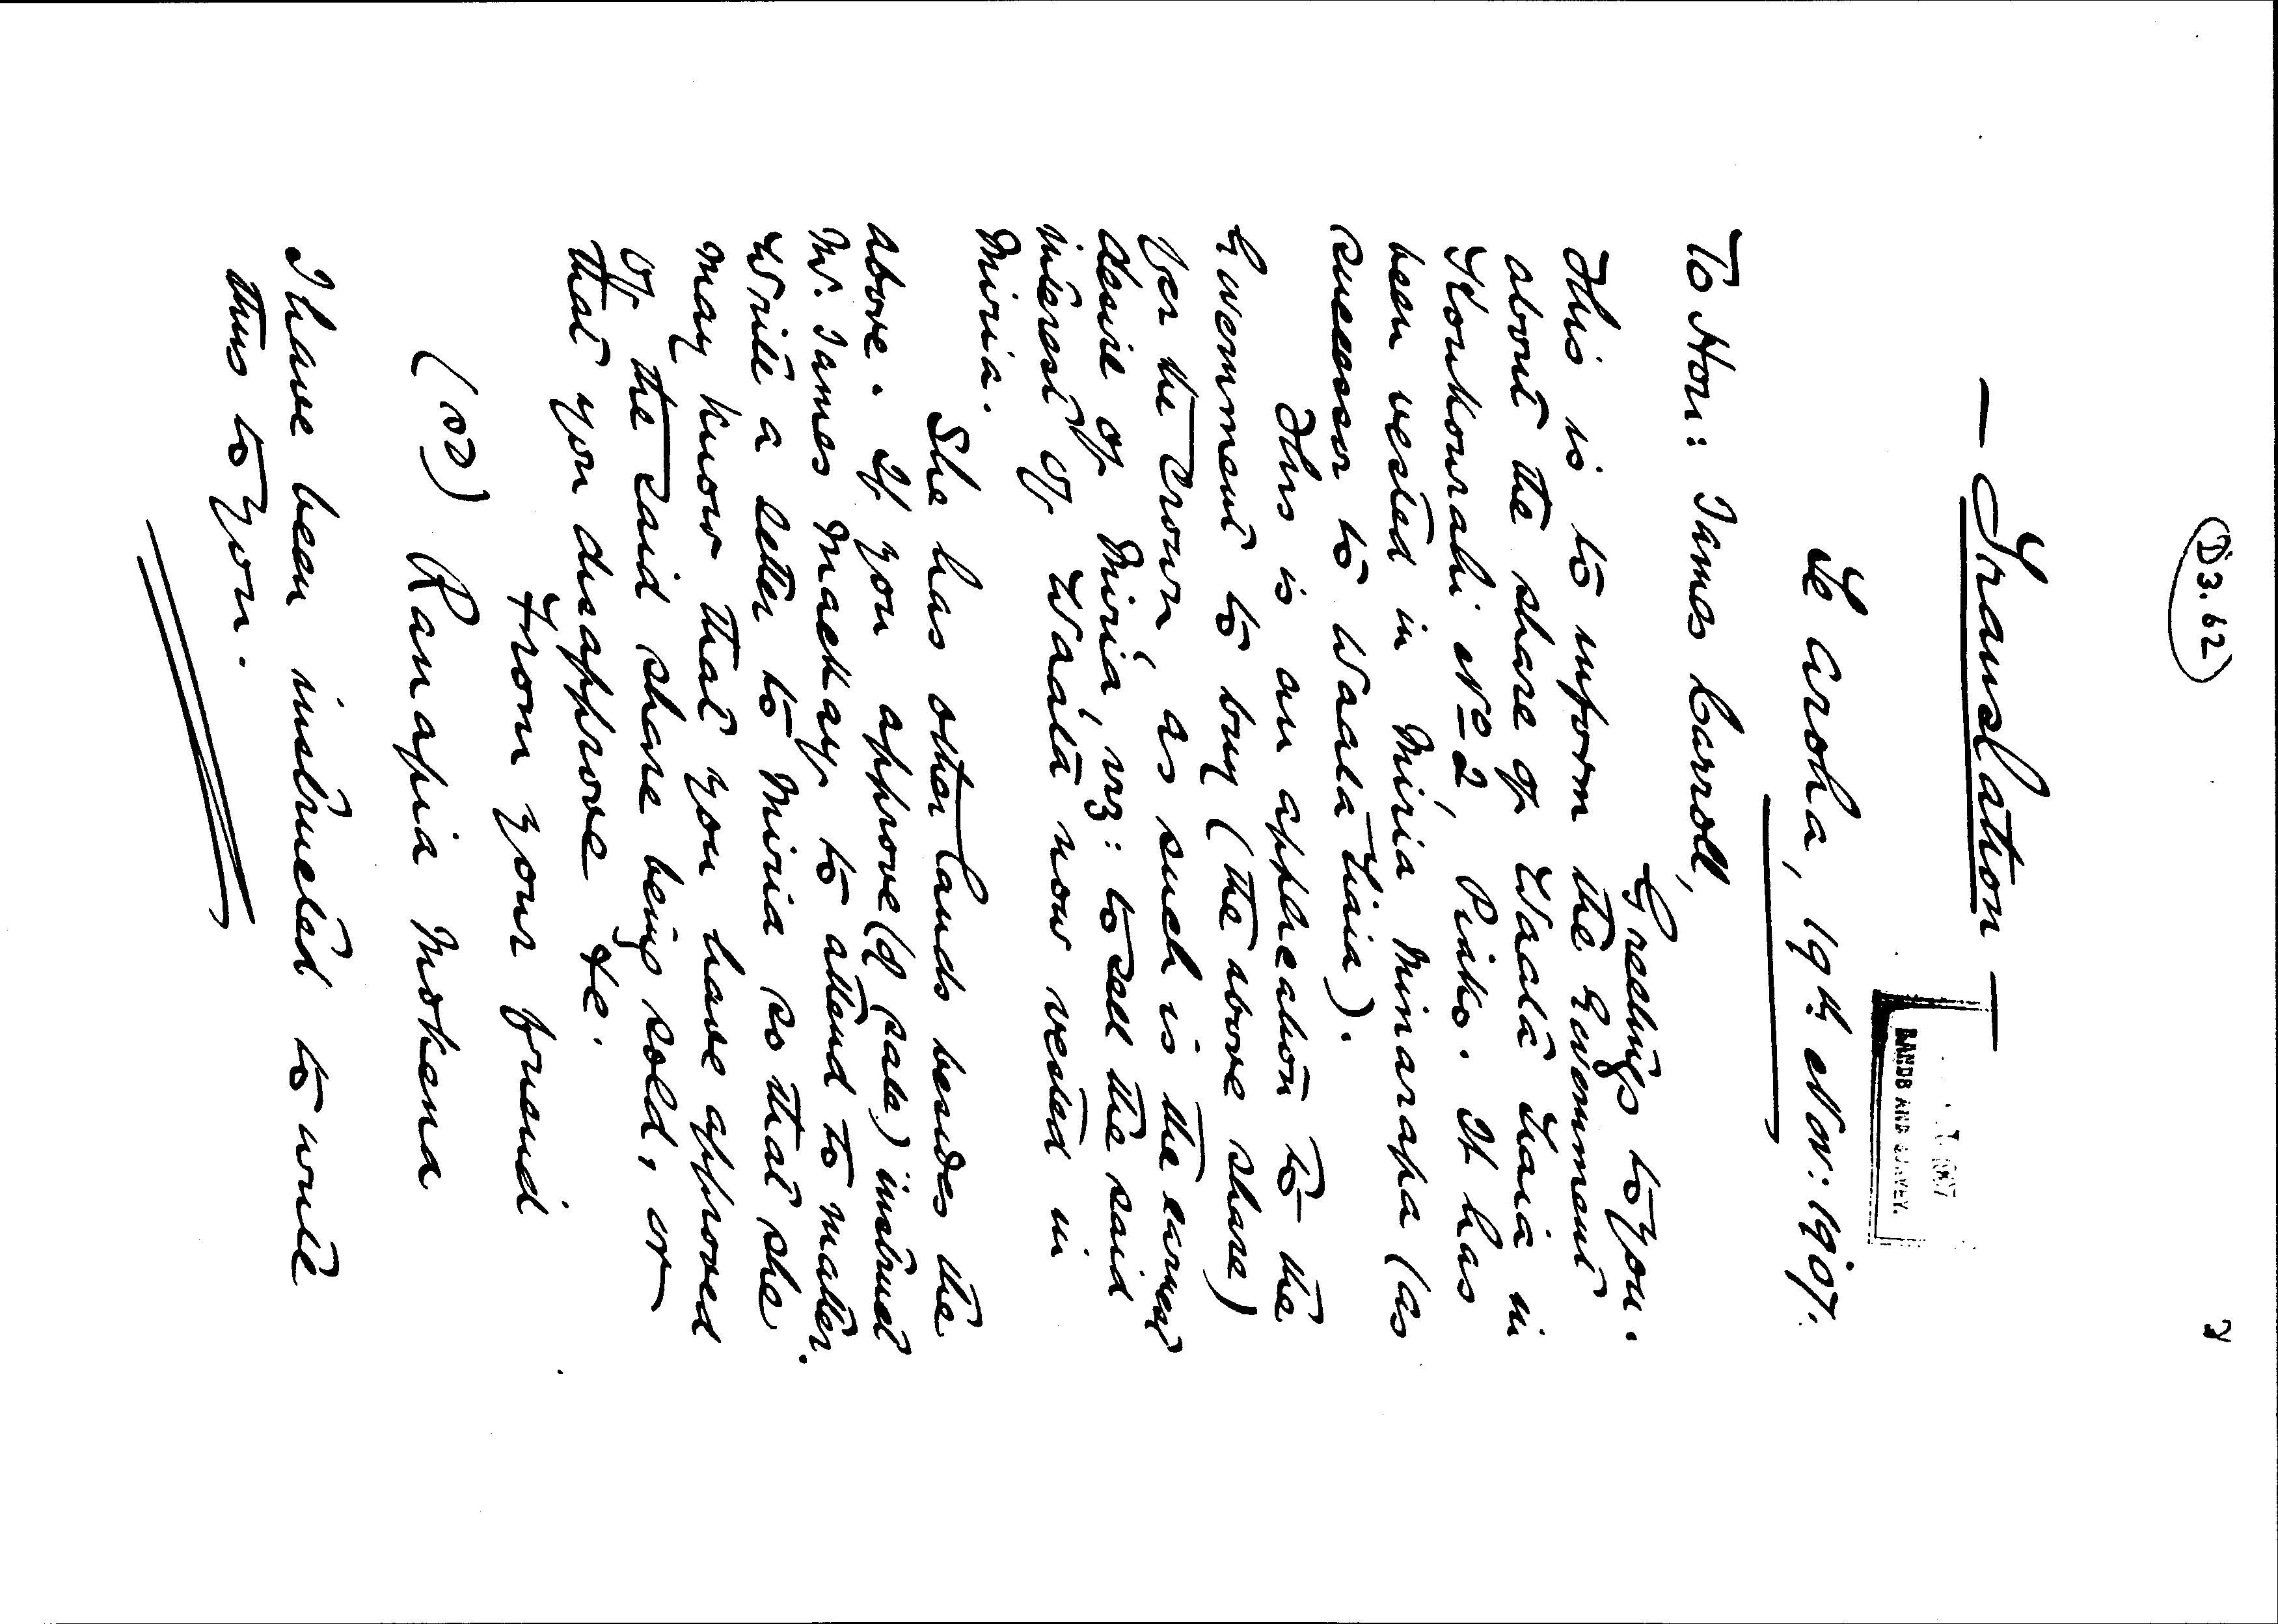 D3.62
2
— Translation —
Te Aroha, 19th Nov: 1907.
LANDS AND SURVEY.
To Hon: James Carroll,
Greetings to you.
This is to inform the Government
about the share of Waata Tiaia in
Houkourahi No 2, Piako. It has
been vested in Miria Minarapa (as
successor to Waata Tiaia).
This is an application to the
Government to buy (the above share)
for the Crown as such is the earnest
desire of Miria, viz: to sell the said
interest of Waata now vested in
Miria.
She has other lands besides the
above. If you approve (of sale) instruct
Mr. James Mackay to attend to matter.
Write a letter to Miria so that she
may know that you have approved
of the said share being sold, or
that you disapprove &c.
From your friend
(sd) Ranapia Mokena
I have been instructed to write
thus to you.